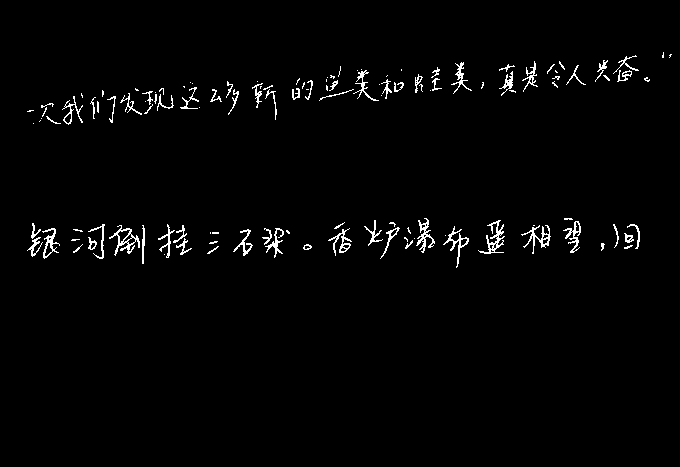 一次我们发现这么多新的鱼类和蛙类，真是令人兴奋。”
银河倒挂三石梁。香炉瀑布遥相望，回